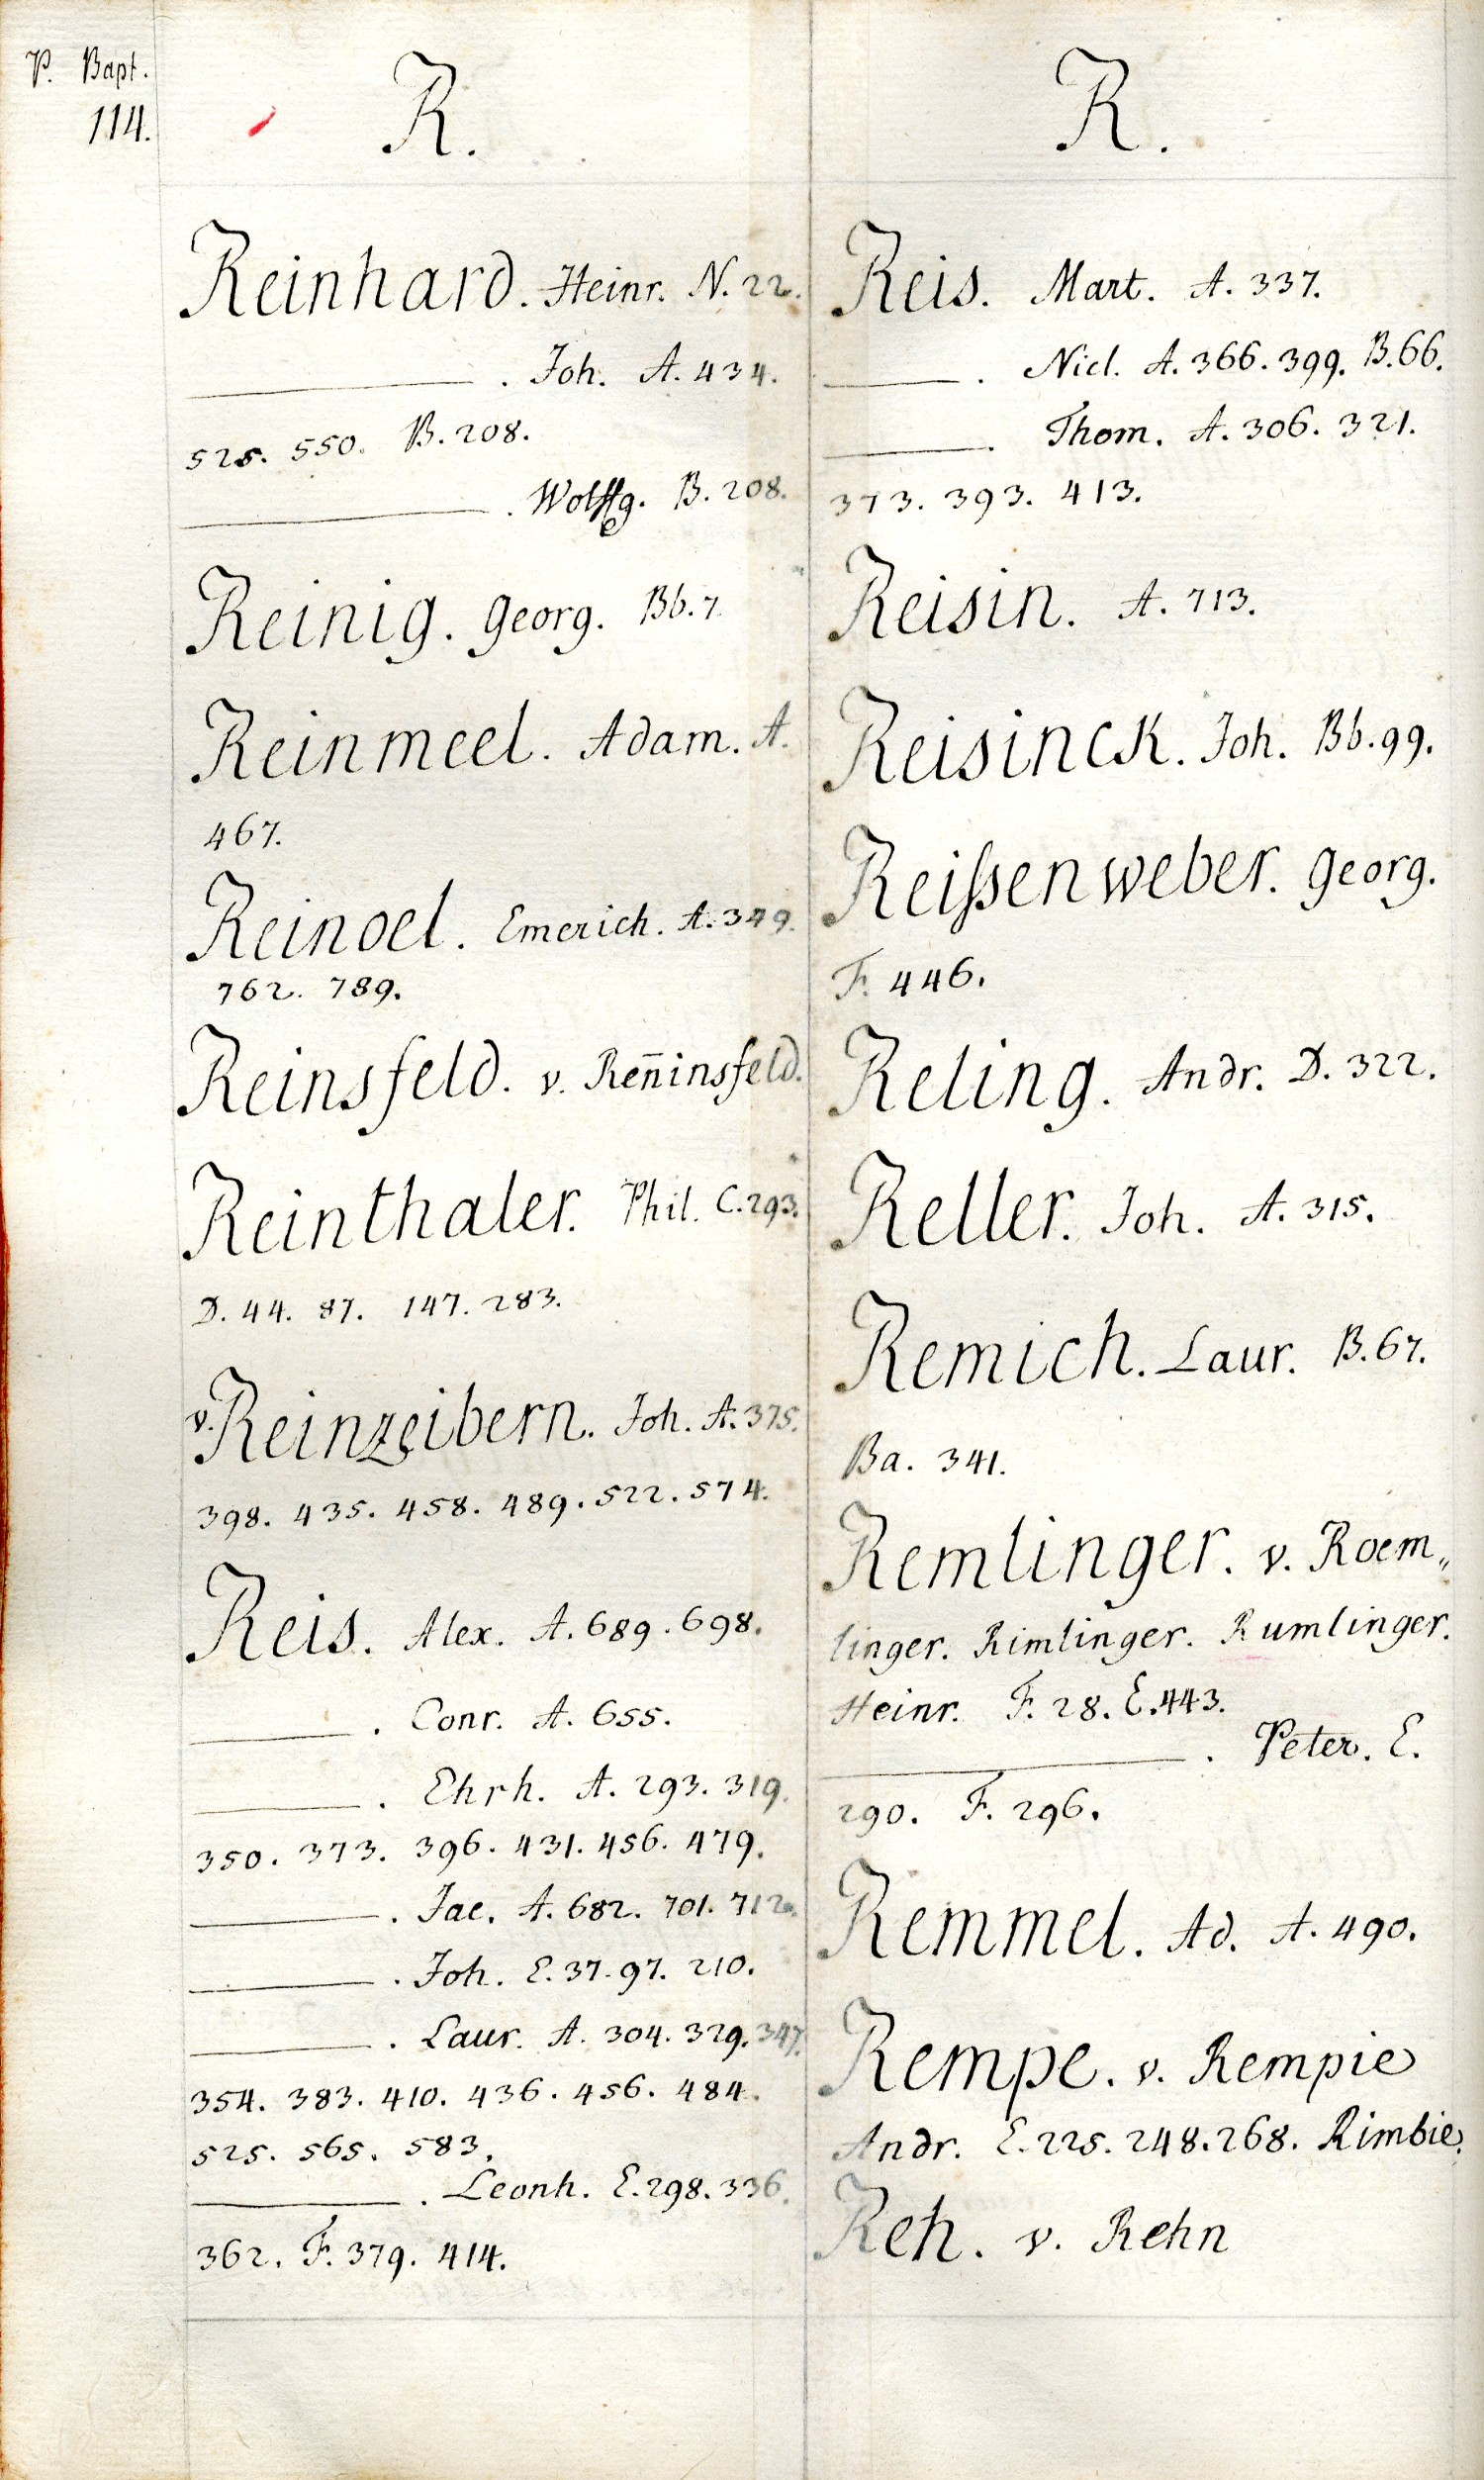 P. Bapt.
114.
R.
Reinhard. Heinr. N. 22.
———. Joh. A. 434.
525. 550. B. 208.
———. Wolffg. B. 208.
Reinig. Georg. Bb. 7
Reinmeel. Adam. A.
467.
Reinoel. Emerich. A. 349.
762. 789.
Reinsfeld. v. Ren̄insfeld.
Reinthaler. Phil. C. 293.
D. 44. 87. 147. 283.
v. Reinzeibern. Joh. A. 375.
398. 435. 458. 489. 522. 574.
Reis. Alex. A. 689. 698.
———. Conr. A. 655.
———. Ehrh. A. 293. 319.
350. 373. 396. 431. 456. 479.
———. Jac. A. 682. 701. 712.
———. Joh. E. 37. 97. 210.
———. Laur. A. 304. 329. 347.
354. 383. 410. 436. 456. 484.
525. 565. 583.
———. Leonh. E. 298. 336.
362. F. 379. 414.
R.
Reis. Mart. A. 337.
———. Nicl. A. 366. 399. B. 66.
———. Thom. A. 306. 321.
373. 393. 413.
Reisin. A. 713.
Reisinck. Joh. Bb. 99.
Reiſsenweber. Georg.
F. 446.
Reling. Andr. D. 322.
Reller. Joh. A. 315.
Remich. Laur. B. 67.
Ba. 341.
Remlinger. v. Roem„
linger. Rimlinger. Rumlinger.
Heinr. F. 28. E. 443.
———. Peter. E.
290. F. 296.
Remmel. Ad. A. 490.
Rempe. v. Rempie
Andr. E. 225. 248. 268. Rimbie.
Reh. v. Rehn